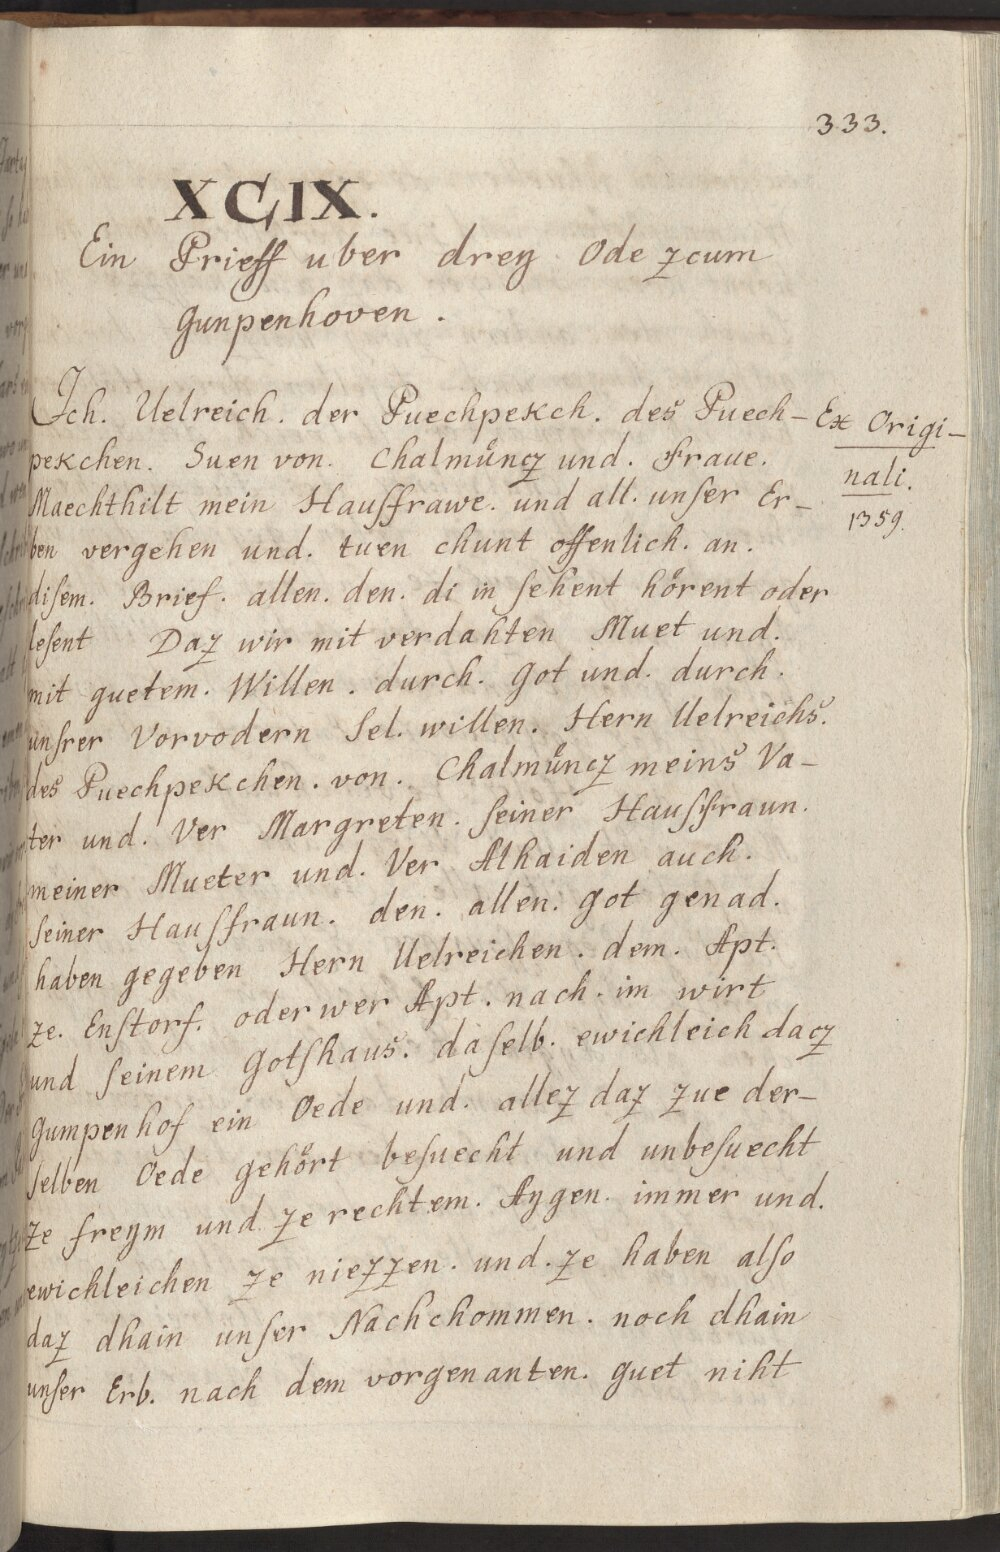 333.
XCIX.
Ein Prieff uber drey Ode zcum
Gunpenhoven.
Ich. Uelreich. der Puechpekch. des Puech-
pekchen. Suen von. Chalmüncz und. Fraue.
Maechthilt mein Hausfrawe. und all. unser Er-
ben vergehen und. tuen chunt offenlich. an.
disem. Brief. allen. den. di in sehent hörent oder
lesent Daz wir mit verdahten Muet und.
mit guetem. Willen. durch. Got und. durch.
unsrer Vorvodern Sel. willen. Hern Uelreichs.
des Puechpekchen. von. Chalmüncz meins Va-
ter und. Ver Margreten. seiner Hausfraun.
meiner Mueter und. Ver Alhaiden auch.
seiner Hausfraun. den. allen. Got genad.
haben gegeben Hern Uelreichen. dem. Apt.
ze. Enstorf. oder wer Apt. nach. im wirt
und seinem Gotshaus. daselb. ewichleich dacz
Gumpenhof ein Oede und. allez daz zue der-
selben Oede gehört besuecht und unbesuecht
ze freym und ze rechtem. Aygen. immer und.
ewichleichen ze niezzen. und. ze haben also
daz dhain unser Nachchommen. noch dhain
unser Erb. nach dem vorgenanten. guet niht
Ex Origi-
nali.
1359.